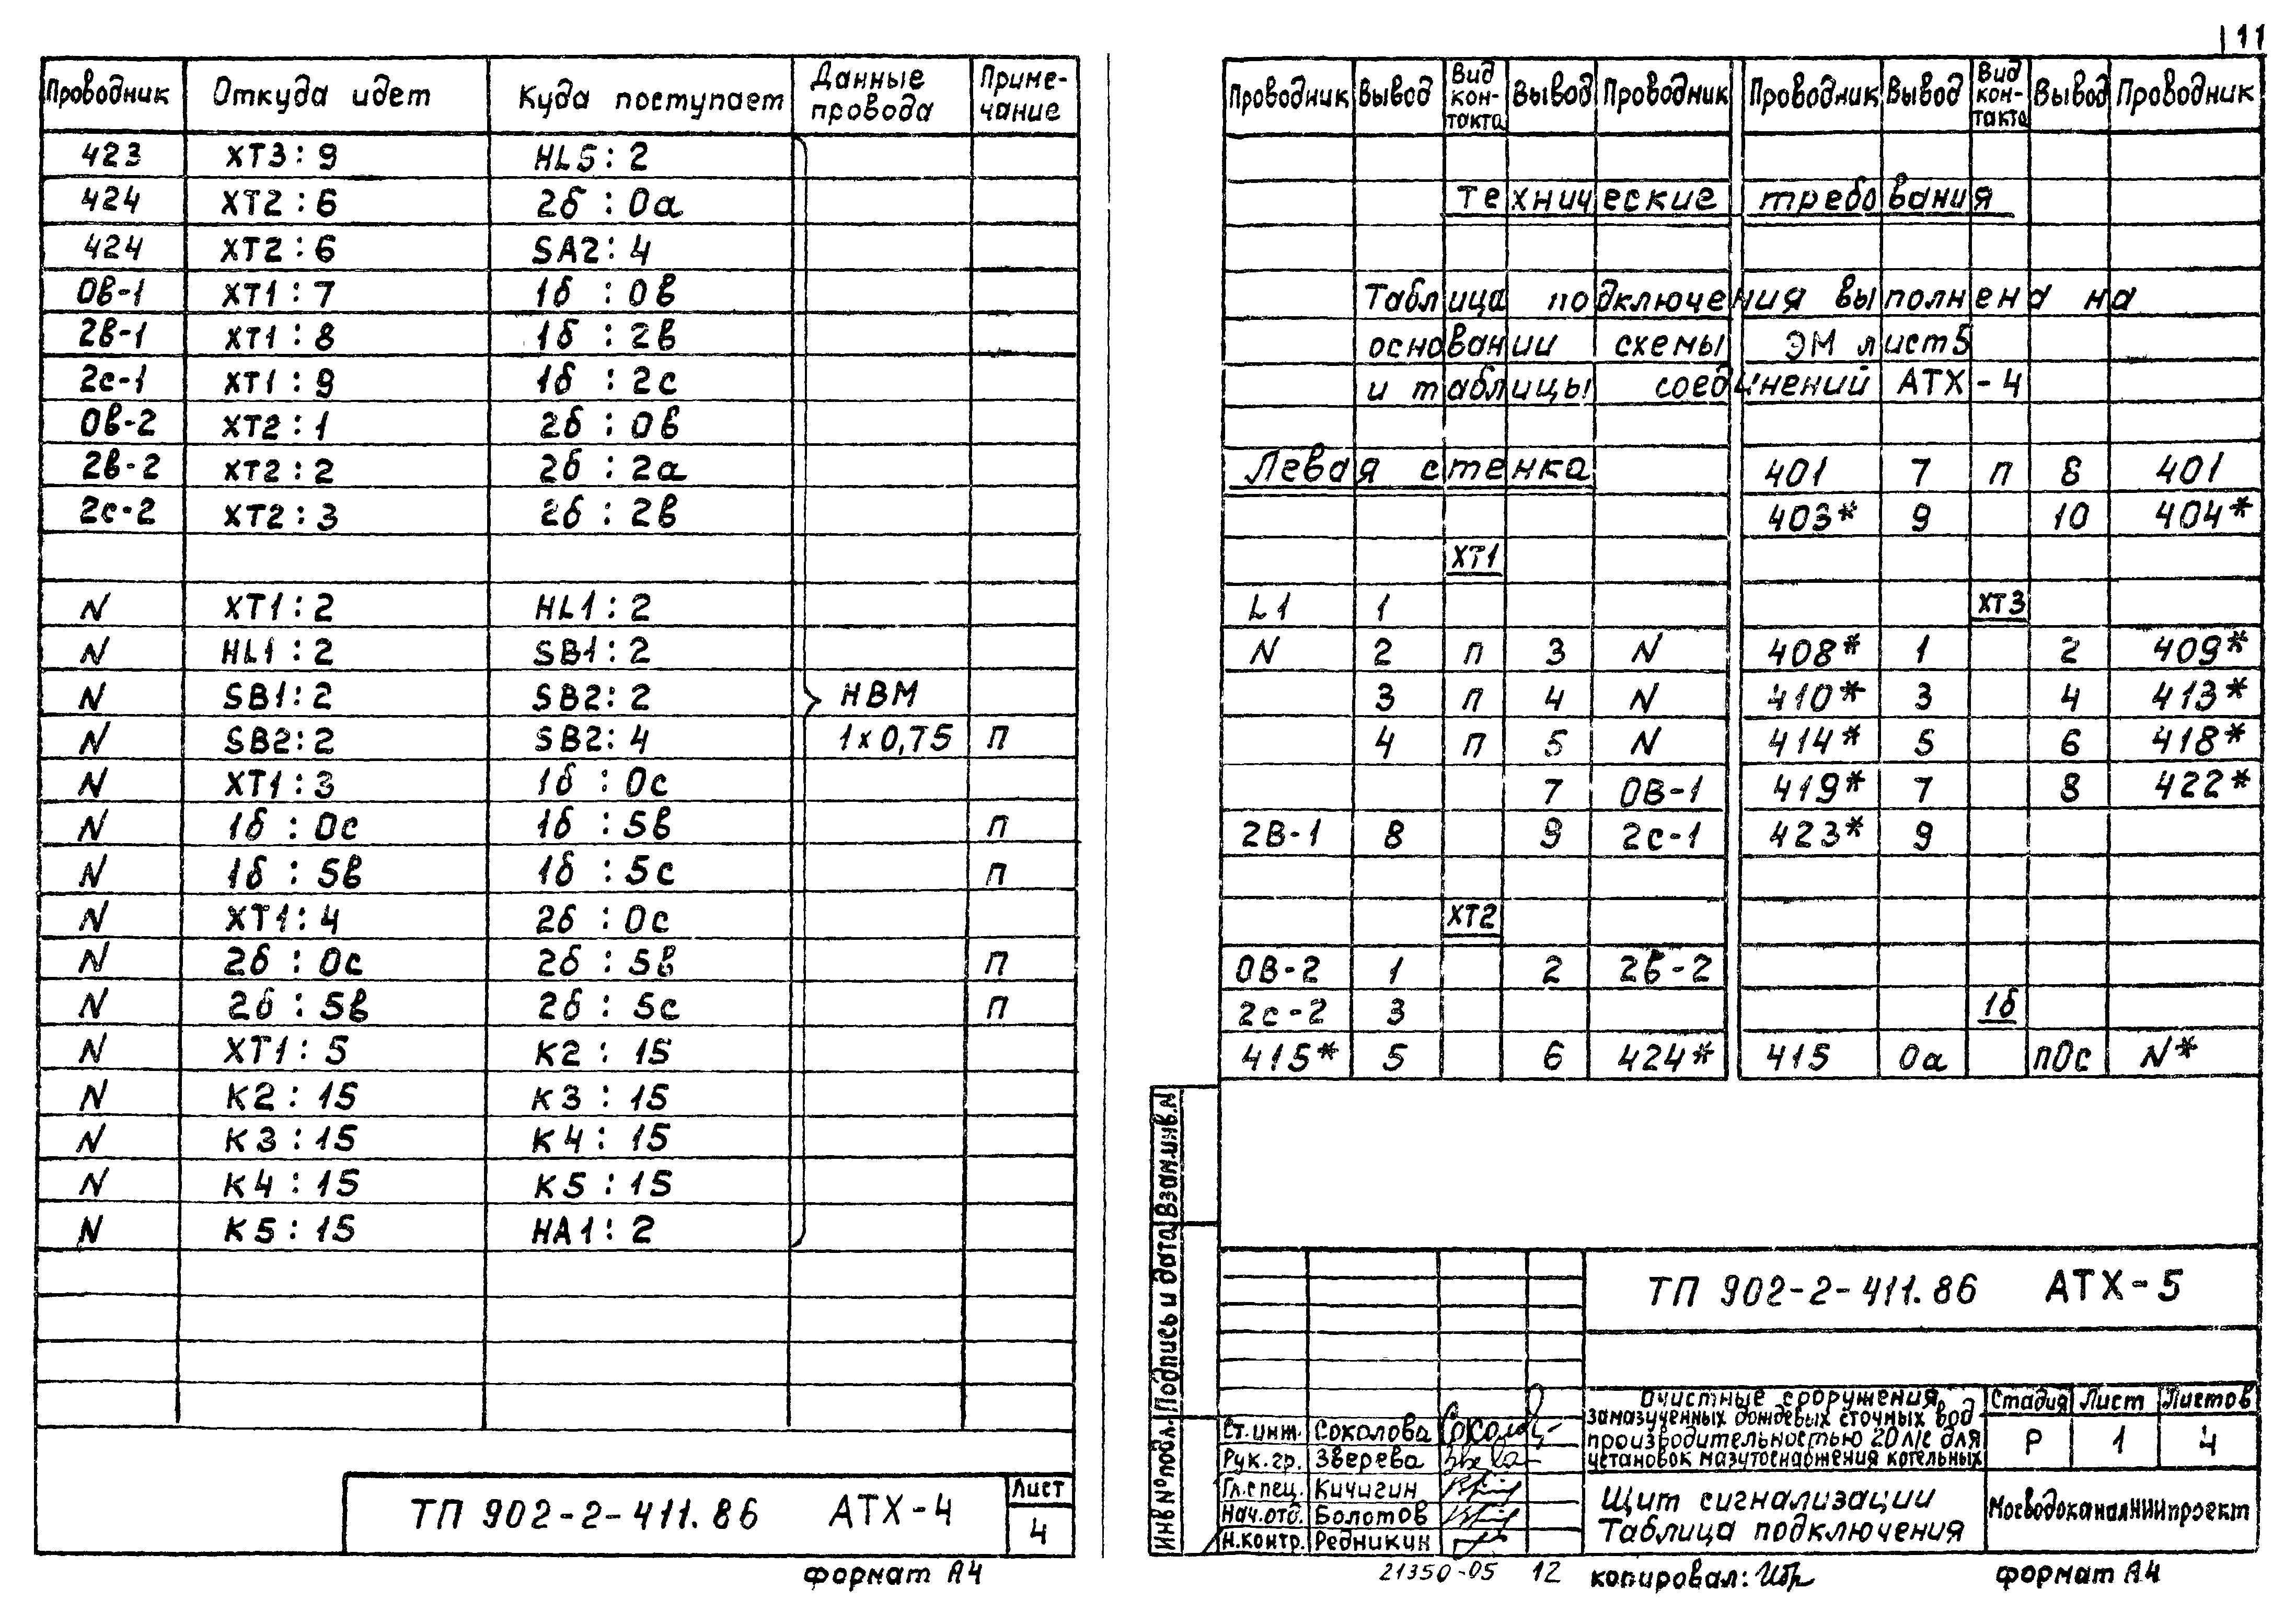 11
Проводник Откуда идет Куда поступает Данные провода Приме-чание
423 XT3:9 HL5:2
424 XT2:6 2б :0а
424 XT2:6 SA2:4
0в-1 XT1:7 1б :0в
2в-1 XT1:8 1б :2в
2с-1 XT1:9 1б :2с
0в-2 XT2:1 2б :0в
2в-2 XT2:2 2б :2а
2с-2 XT2:3 2б :2в
N XT1:2 HL1:2
N HL1:2 SB1:2
N SB1:2 SB2:2 НВМ
N SB2:2 SB2:4 1х0,75 П
N XT1:3 1б :0с
N 1б :0с 1б :5в П
N 1б :5в 1б :5с П
N XT1:4 2б :0с
N 2б :0с 2б :5в П
N 2б :5в 2б :5с П
N XT1:5 K2:15
N K2:15 K3:15
N K3:15 K4:15
N K4:15 K5:15
N K5:15 HA1:2
ТП 902-2-411.86 АТХ-4
Лист
4
формат А4
Проводник Вывод Вид кон-такта Вывод Проводник Проводник Вывод Вид кон-такта Вывод Проводник
Технические требования
Таблица подключения выполнена на
основании схемы ЭМ лист5
и таблицы соединений АТХ-4
Левая стенка 401 7 п 8 401
403* 9 10 404*
XT1
L1 1 XT3
N 2 п 3 N 408* 1 2 409*
3 п 4 N 410* 3 4 413*
4 п 5 N 414* 5 6 418*
7 0В-1 419* 7 8 422*
2В-1 8 9 2с-1 423* 9
XT2
0В-2 1 2 2в-2
2с-2 3 1б
415* 5 6 424* 415 0а п0с N*
Инв № подл. Подпись и дата Взам.инв.N
ТП 902-2-411.86 АТХ-5
Очистные сооружения
замазученных дождевых сточных вод
производительностью 20 л/с для
установок мазутоснабжения котельных
Стадия Лист Листов
Р 1 4
Ст.инж. Соколова
Рук.гр. Зверева
Гл.спец. Кичигин
Нач.отд. Болотов
Н.контр. Редникин
Щит сигнализации
Таблица подключения
МосводоканалНИИпроект
21350-05 12 копировал: формат А4